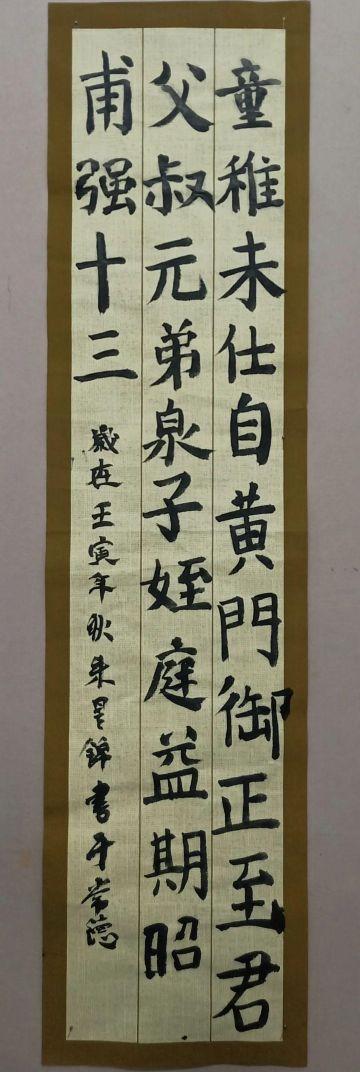 童稚未仕自黄門御正至君
父叔元弟泉子姪庭益期昭
甫强十三
歲在王寅年秋朱星錦書于常德